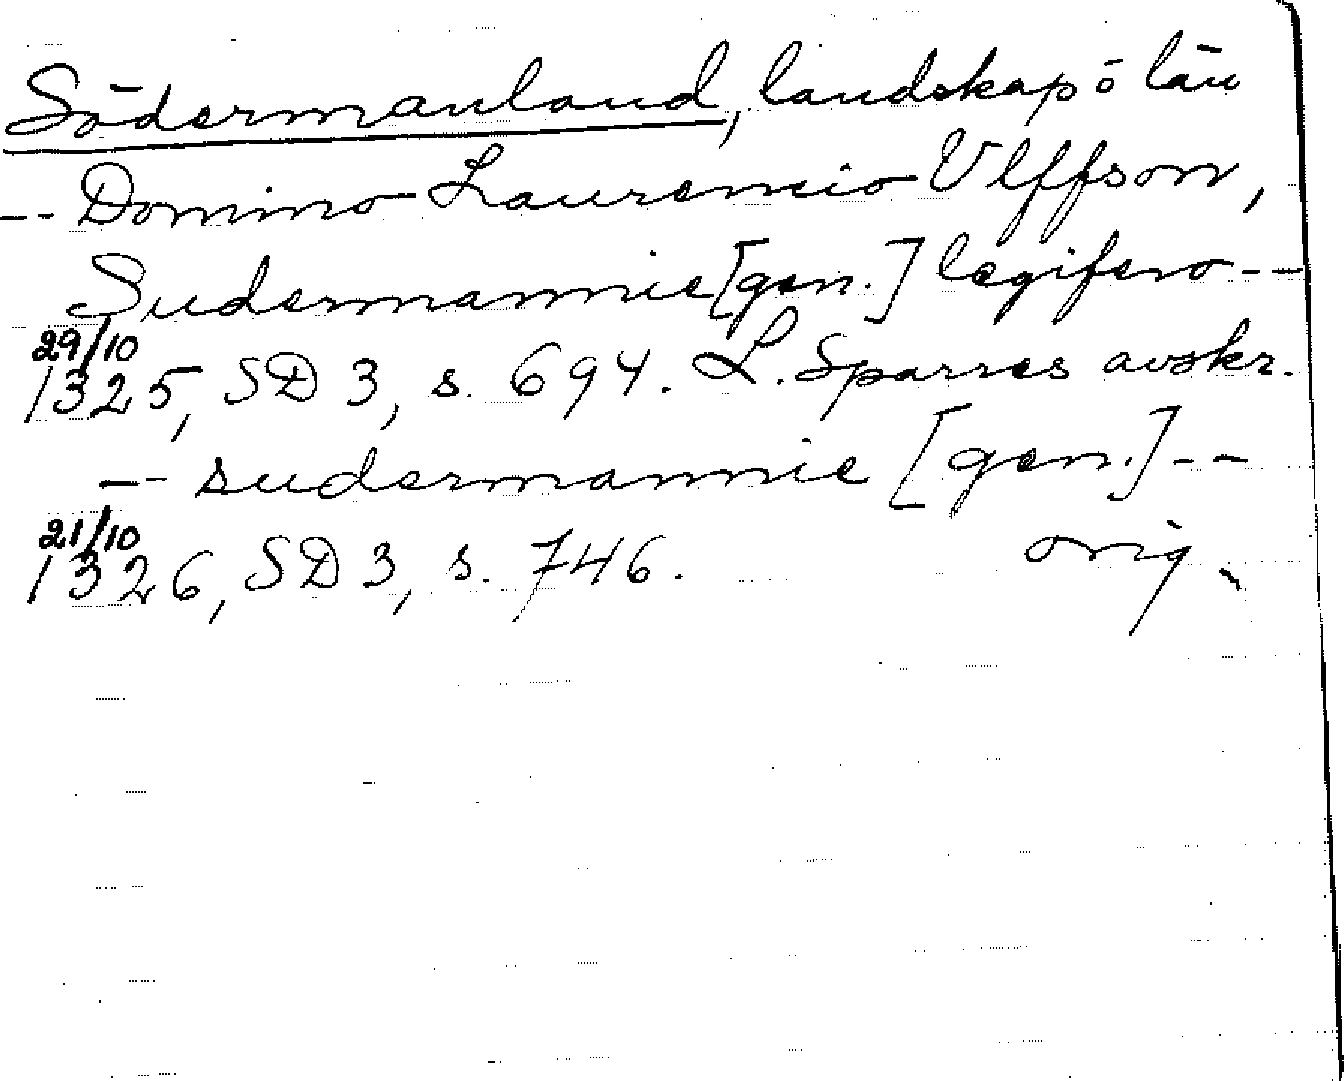 Södermanland, landskap ō län
-- Domino Laurencio Vlffson,
Sudermannie [gen.] legifero --
29/10
1325, SD 3, s. 694. L. Sparres avskr.
-- sudermannie [gen.] --
21/10
1326, SD 3, s. 746. orig.